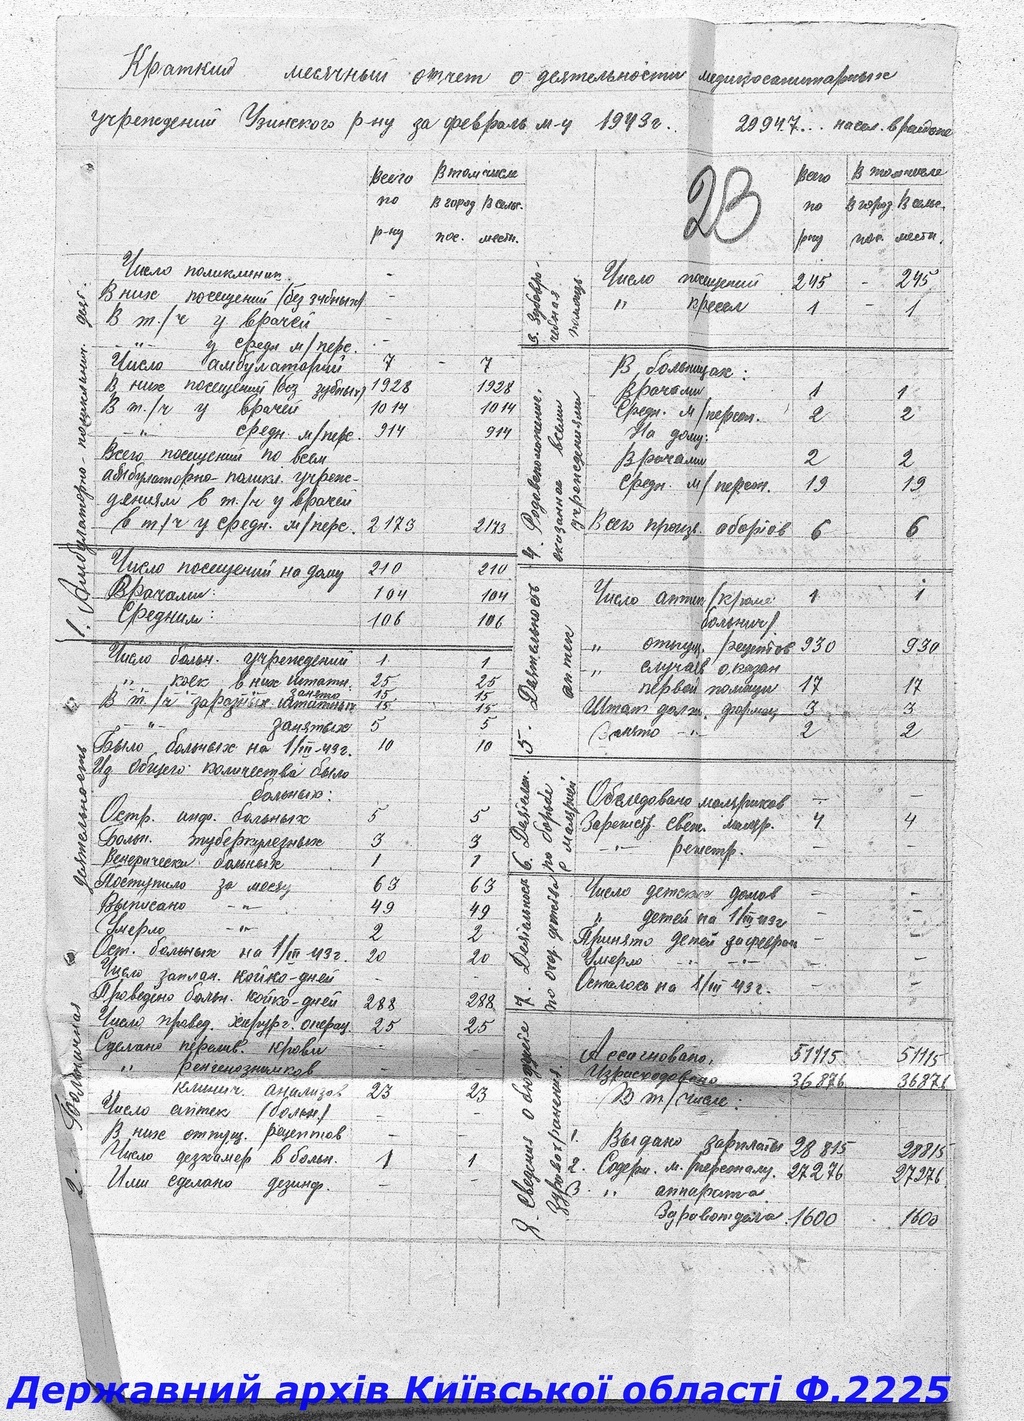 Краткий месячный отчет о деятельности медикосанитарных
учреждений Узинского р-ну за февраль м-ц 1943г. 29947... насел. в районе
23
Всего по р-ну
В том числе
В город. пос.
В сельс. местн.
1. Амбулаторно-поликлинич. деят.
Число поликлиник - -
В них посещений (без зубных) -
В т/ч у врачей -
-"- у средн м/перс. -
Число амбулаторий 7 - 7
В них посещений (без зубных) 1928 1928
В т/ч у врачей 1014 1014
-"- средн м/перс. 914 914
Всего посещений по всем
амбулаторно-поликл. учреж-
дениям в т/ч у врачей
в т/ч у средн. м/перс. 2173 2173
Число посещений на дому 210 210
Врачами: 104 104
Средним: 106 106
2. Больничная деятельность
Число больн. учреждений 1 1
" коек в них штатн. 25 25
занято 15 15
В т/ч заразных штатных 15 15
-"- занятых 5 5
Было больных на 1/III-43г. 10 10
Из общего количества было
больных:
Остр. инф. больных 5 5
Больн. туберкулезных 3 3
Венерически больных 1 1
Поступило за месяц 63 63
Выписано -"- 49 49
Умерло -"- 2 2
Ост. больных на 1/III-43г. 20 20
Число заплан. койко-дней
Проведено больн. койко-дней 288 288
Число провед. хирург. операц. 25 25
Сделано перелив. крови - -
" ренгенознимков - -
клинич. анализов 23 23
Число аптек (больн.) - -
В них отпущ. рецептов - -
Число дезкамер в больн. 1 1
Ими сделано дезинф. - -
Всего по р-ну
В том числе
В город. пос.
В сельс. местн.
3. Зубовра-
чебная
помощь
Число посещений 245 - 245
" кресел 1 1
4. Родовспоможение,
оказанное всеми
учреждениями
В больницах:
Врачами 1 1
Средн. м/персон. 2 2
На дому:
Врачами 2 2
Средн. м/персон. 19 19
Всего произв. абортов 6 6
5. Деятельность
аптек
Число аптек (кроме 1 1
больнич)
" отпущ. рецептов 930 930
" случаев оказан
первой помощи 17 17
Штат долж. формац 3 3
Занято -"- 2 2
6. Деятельн.
по борьбе
с малярией
Обследовано маляриков - -
Зарегистр. свеж. маляр. 4 4
-"- рецетр. - -
7. Деятельность
по охр. детства
Число детских домов - -
" детей на 1/III 43г - -
Принято детей за феврал - -
Умерло -"- -"- - -
Осталось на 1/III 43г. - -
8. Сведения о бюджете
здравоохранения.
Ассигновано, 51115 51115
Израсходовано 36876 36876
В т/числе:
1. Выдано зарплаты 28815 28815
2. Содерж. м. персоналу. 27276 27276
3. " аппарата
Здравотдела 1600 1600
Державний архів Київської області Ф.2225